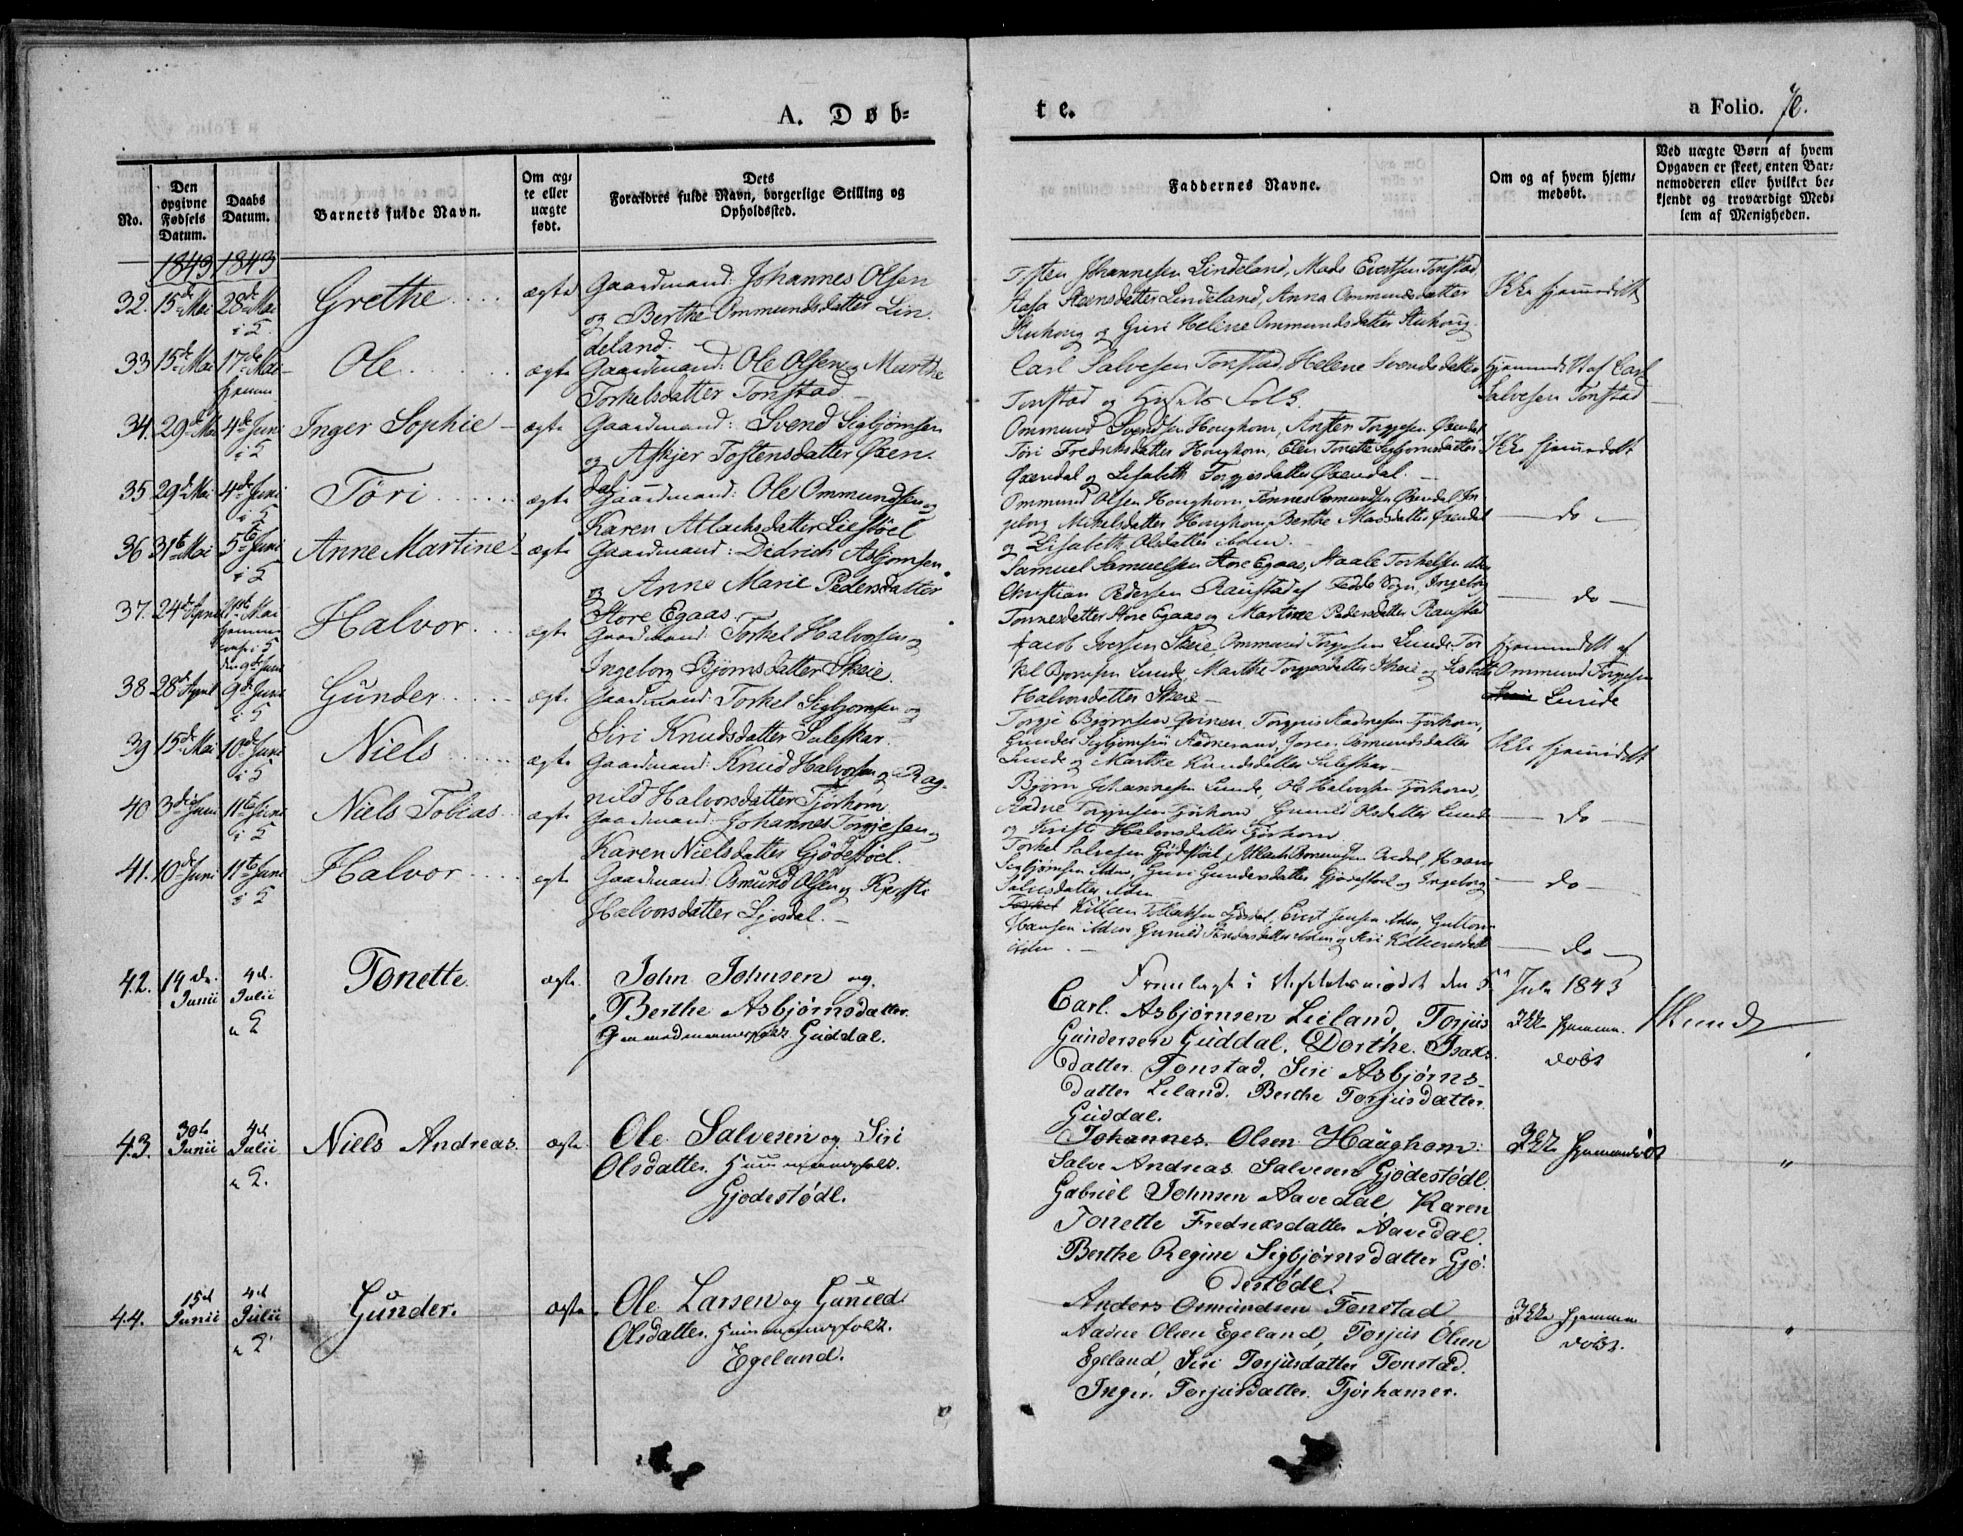 A. Døb=
te.
a Folio. 70.
No.
Den opgivne Fødsels Datum.
Daabs Datum.
Barnets fulde Navn.
Om æg= te eller uægte født.
Dets Forældres fulde Navn, borgerlige Stilling og Opholdssted.
Faddernes Navne.
Om og af hvem hjem= medøbt.
Ved uægte Børn af hvem
Opgaven er skeet, enten Bar=
nemoderen eller hvilket be=
kjendt og troværdigt Med=
lem af Menigheden.
1843 1843
32. 15de Mai 28de Mai i 5 Grethe ægte Gaardmand: Johannes Olsen
og Berthe Ommundsdatter Lin
deland.
Johannesen Lindeland, Mads Evertsen Tonstad,
Steensdatter Lindeland, Anna Ommundsdatter
og Guri Helene Ommundsdatter
Ikke hjemmedøbt
33 15de Mai 17de Mai hjemme Ole ægte Gaardmand: Ole Olsen og Marthe
Torkelsdatter Tonstad
Carl Salvesen Tonstad, Helene Svendsdatter
Tonstad og Husets Folk.
Hjemmedøbt af Carl
Salvesen Tonstad
34. 29de Mai 4de Juni i 5 Inger Sophie ægte Gaardmand: Svend Sigbjørnsen
og Askjer Tostensdatter Øxen
dal
Ommund Svendsen Houghom, Torgjesen Øxendal
Tøri Fredriksdatter Houghom, Elen Tonette Sigbjørnsdatter
Øxendal og Lisabeth Torgjesdatter Øxendal
Ikke hjemmedøbt
35 29de Mai 4de Juni i 5 Tøri ægte Gaardmand: Ole Ommundsen og
Karen Atlachsdatter Liestøel
Ommund Olsen Houghom, Tønnes Ommundsen Øxendal, In
geborg Mikelsdatter Houghom, Berthe Madsdatter Øxendal
og Lisabeth Olsdatter ibden.
do
36 31te Mai 5te Juni i 5 Anne Martine ægte Gaardmand: Dedrich Asbjørnsen
og Anne Marie Pedersdatter
Store Egaas
Samuel Samuelsen Store Egaas, Staale Torkelsen
Christian Pedersen Raustad af Fedde Sogn, Ingeborg
Tonnesdatter Store Egaas og Martine Pedersdatter Raustad
do
37. 24de April Mai hjemme i 5 den 9de Juni Halvor ægte Gaardmand: Torkel Halvorsen og
Ingeborg Bjørnsdatter Skeie.
Jacob Iversen Skeie, Ommund Torgjesen Lunde, Tor
kel Bjørnsen Lunde, Marthe Torgjesdatter Skeie og Lisabeth
Halvorsdatter Skeie
Hjemmedøbt af
Ommund Torgjesen
Lunde
38. 28de April 9de Juni i 5 Gunder ægte Gaardmand: Torkel Sigbjørnsen og
Siri Knudsdatter Suleskar.
Torgje Bjørnsen Qvinen, Torgjus Aadnesen Tjørhom,
Gunder Sigbjørnsen Aadneram, Joren Osmundsdatter
Lunde og Marthe Knudsdatter Suleskar
Ikke hjemmedøbt
39 15de Mai 10de Juni i 5 Niels ægte Gaardmand: Knud Halvorsen og Rag
nild Halvorsdatter Tjørhom
Bjørn Johannesen Lunde, Ole Halvorsen Tjørhom,
Aadne Torgjusen Tjørhom, Gunild Olsdatter Lunde
og Kirsti Halvorsdatter Tjørhom
do
40 3die Juni 11te Juni i 5 Niels Tobias ægte Gaardmand: Johannes Torgjesen og
Karen Nielsdatter Gjødestøel.
Torkel Salvesen Gjødestøel, Atlach
Sigbjørnsen ibden, Guri Gundersdatter Gjødestøel og Ingeborg
Salvesdatter ibden
do
41. 10de Juni 11te Juni i 5 Halvor ægte Gaardmand: Osmund Olsen og Kirste
Halvorsdatter Ljosdal.
Evert Jensen ibden,
Hansen ibden, Gunild datter ibden og Siri
ibden.
do
Fremlagt i den 5te Juli 1843
42. 14de Junii 4de Julii a 2 Tonette. ægte. John Johnsen og
Berthe Asbjørnsdatter.
Guddal.
Carl Asbjørnsen Leiland, Torjus
Gundersen Guddal. Dorthe Isaks
datter Tonstad, Siri Asbjørns-
datter Leland. Berthe Torjusdatter
Guddal.
Ikke hjemme
døbt
43. 30te Junii 4de Julii a 2. Niels Andreas. ægte. Ole Salvesen og Siri
Olsdatter. Huusmandsfolk.
Gjødestødl.
Johannes Olsen Haughom
Salve Andreas Salvesen Gjødestødl.
Gabriel Johnsen Aavedal, Karen
Tonette Fredriksdatter Aavedal.
Berthe Regine Sigbjørnsdatter Gjø
destødl.
Ikke hjemmedøbt
"
44. 15de Junii 4de Julii a 2 Gunder. ægte. Ole Larsen og Guneld
Olsdatter. Huusmandsfolk.
Egeland.
Anders Osmundsen Tonstad
Aadne Olsen Egeland, Torjus Olsen
Egeland, Siri Torjusdatter Tonstad.
Inger Torjusdatter. Tjørhamer.
Ikke hjemme
døbt.
"